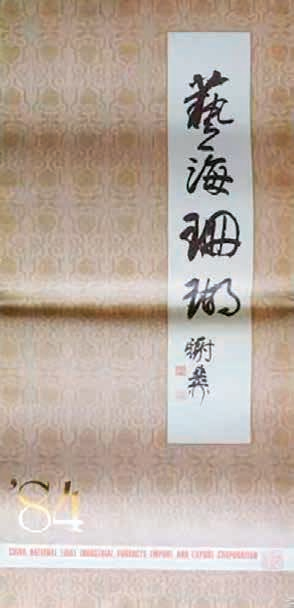 藝海珊瑚
謝
'84
CHINA NATIONAL LIGHT INDUSTRIAL PRODUCTS IMPORT AND EXPORT CORPORATION